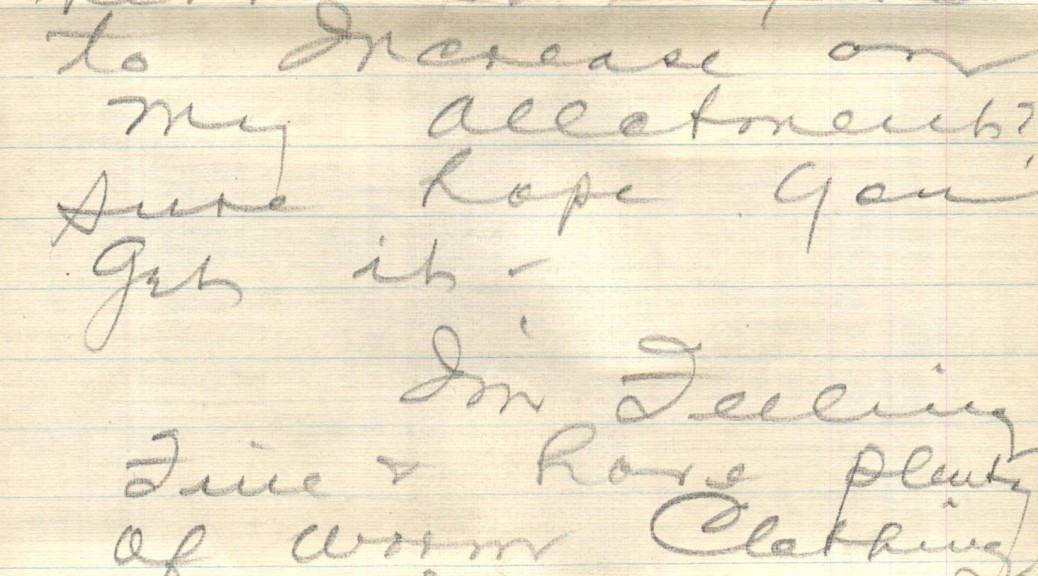 to Increase on
my allotment?
sure hope you
Get it -
I'm Feeling
Fine & have plenty
of warm Clothing